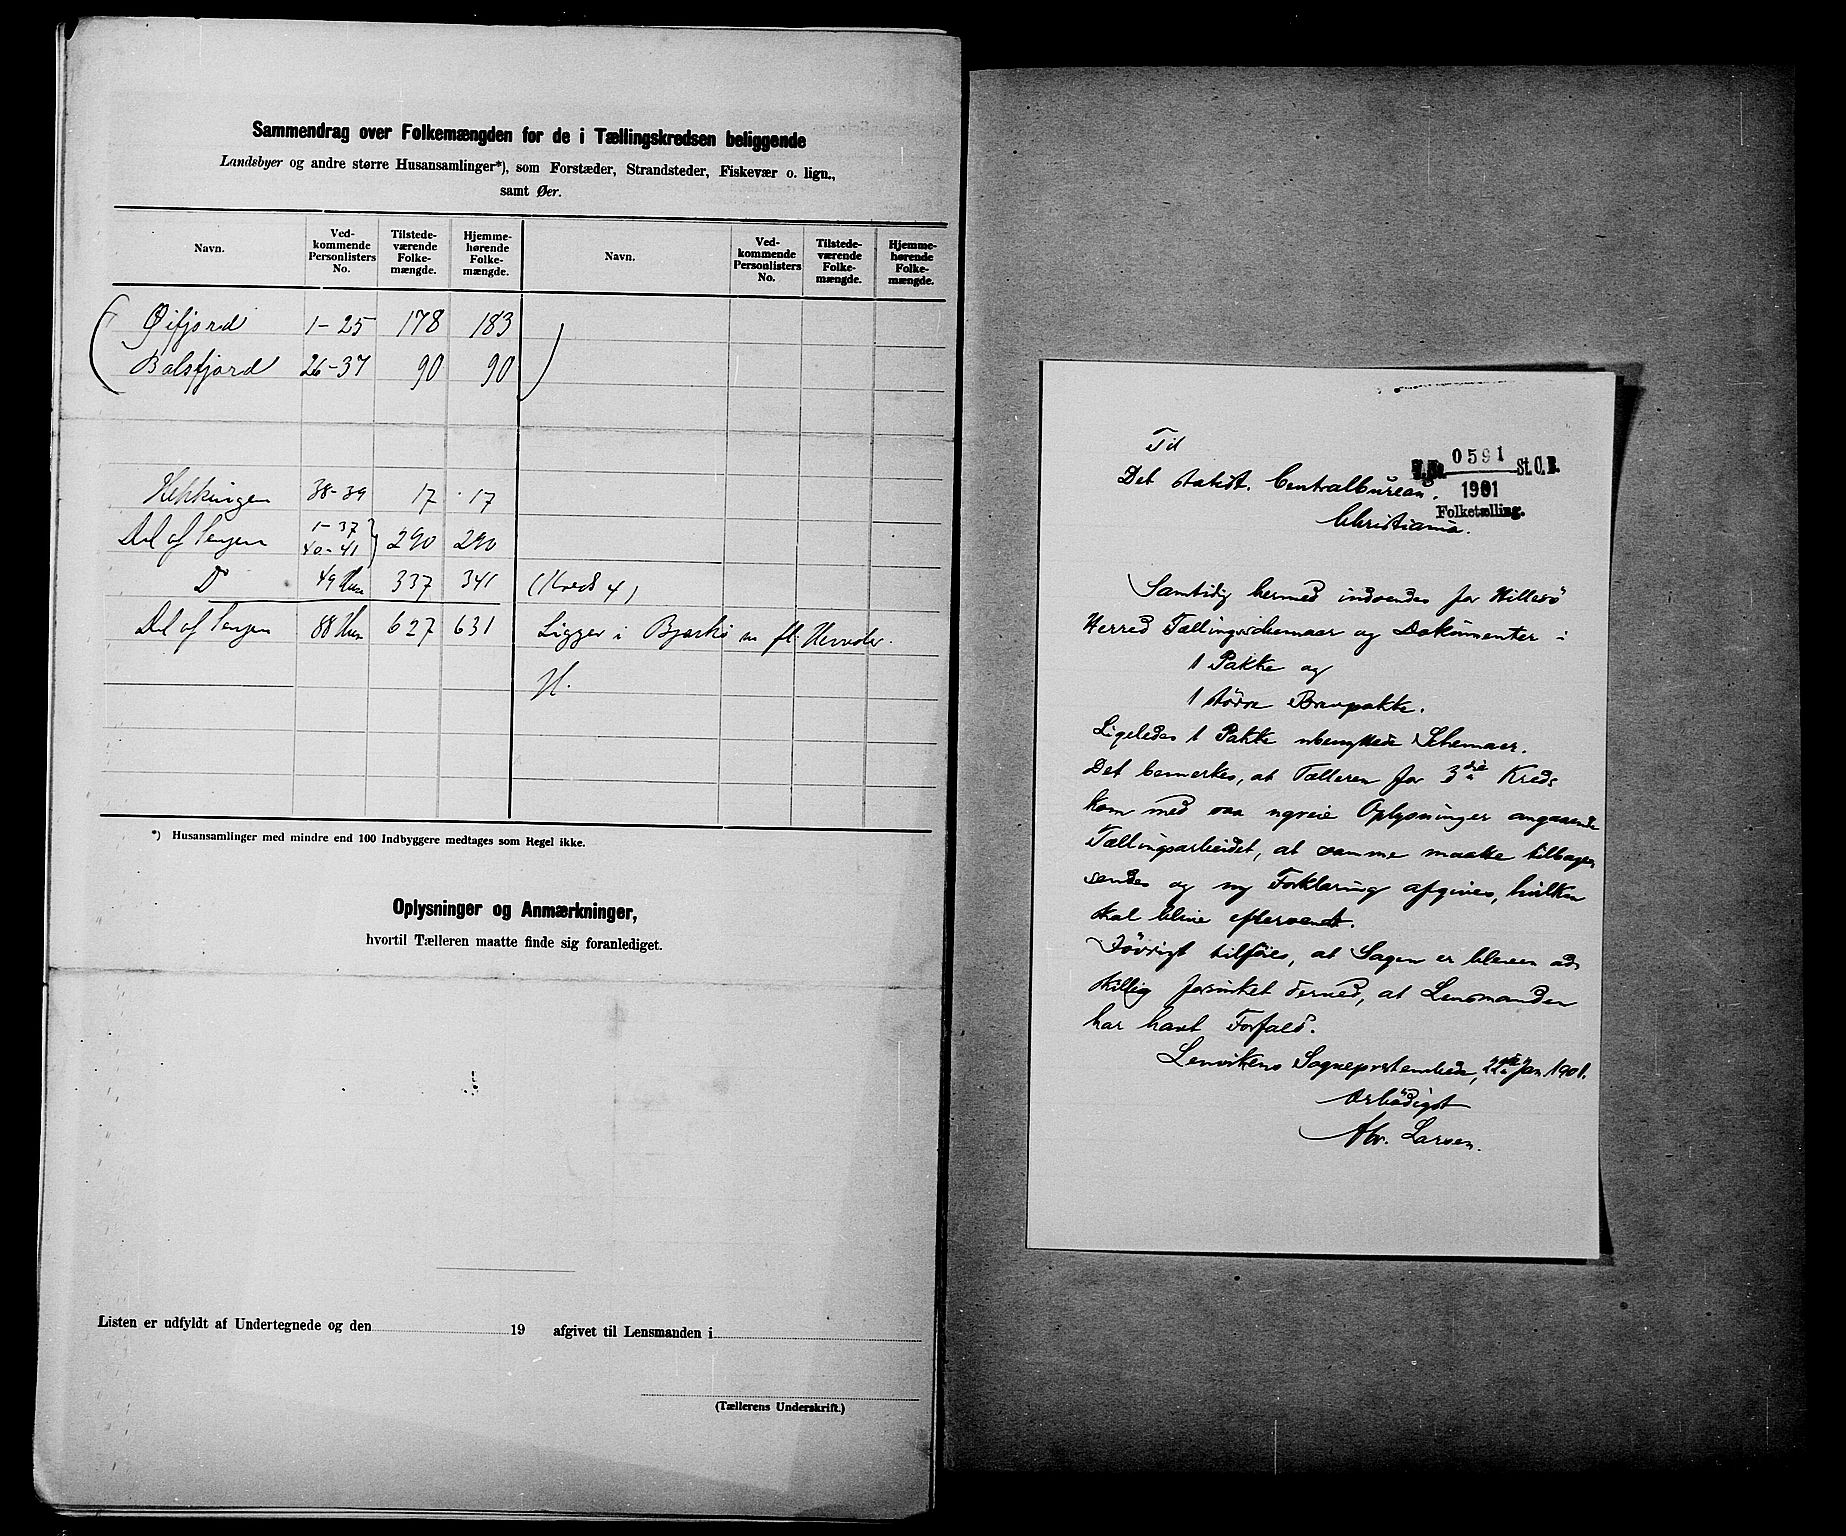 Sammendrag over Folkemængden for de i Tællingskredsen beliggende
Landsbyer og andre større Husansamlinger*), som Forstæder, Strandsteder, Fiskevær o. lign.,
samt Øer.
Navn. Ved-kommende Personlisters No. Tilstede-værende Folke-mængde. Hjemme-hørende Folke-mængde. Navn. Ved-kommende Personlisters No. Tilstede-værende Folke-mængde. Hjemme-hørende Folke-mængde.
Øifjord 1-25 178 183
Balsfjord 26-37 90 90
Hekkingen 38-39 17 17
Del af Senjen 1-37 40-41 290 290
Do 49 Huse 337 341 (Kreds 4)
Del af Senjen 88 Huse 627 631 Ligger i Bjarkö m fl. Herreder.
H.
*) Husansamlinger med mindre end 100 Indbyggere medtages som Regel ikke.
Oplysninger og Anmærkninger,
hvortil Tælleren maatte finde sig foranlediget.
Listen er udfyldt af Undertegnede og den 19 afgivet til Lensmanden i
(Tællerens Underskrift.)
Til
Det statist. Centralbureau.
Christiania.
J. No. 0591 St. C. B.
1901
Folketælling.
Samtidig hermed indsendes for Hillesö
Herred Tællingsschemaer og Dokumenter i
1 Pakke og
1 större Brevpakke.
Ligeledes 1 Pakke ubenyttede Schemaer.
Det bemerkes, at Tælleren for 3die Kreds
kom med saa ugreie Oplysninger angaaende
Tællingsarbeidet, at samme maatte tilbage
sendes og ny Forklaring afgives, hvilken
skal blive eftersendt.
Iövrigt tilföies, at Sagen er bleven ad
skillig forsinket derved, at Lensmanden
har havt Forfald.
Lenvikens Sogneprestembede, 22de Jan 1901.
Ærbödigst
Abr. Larsen.